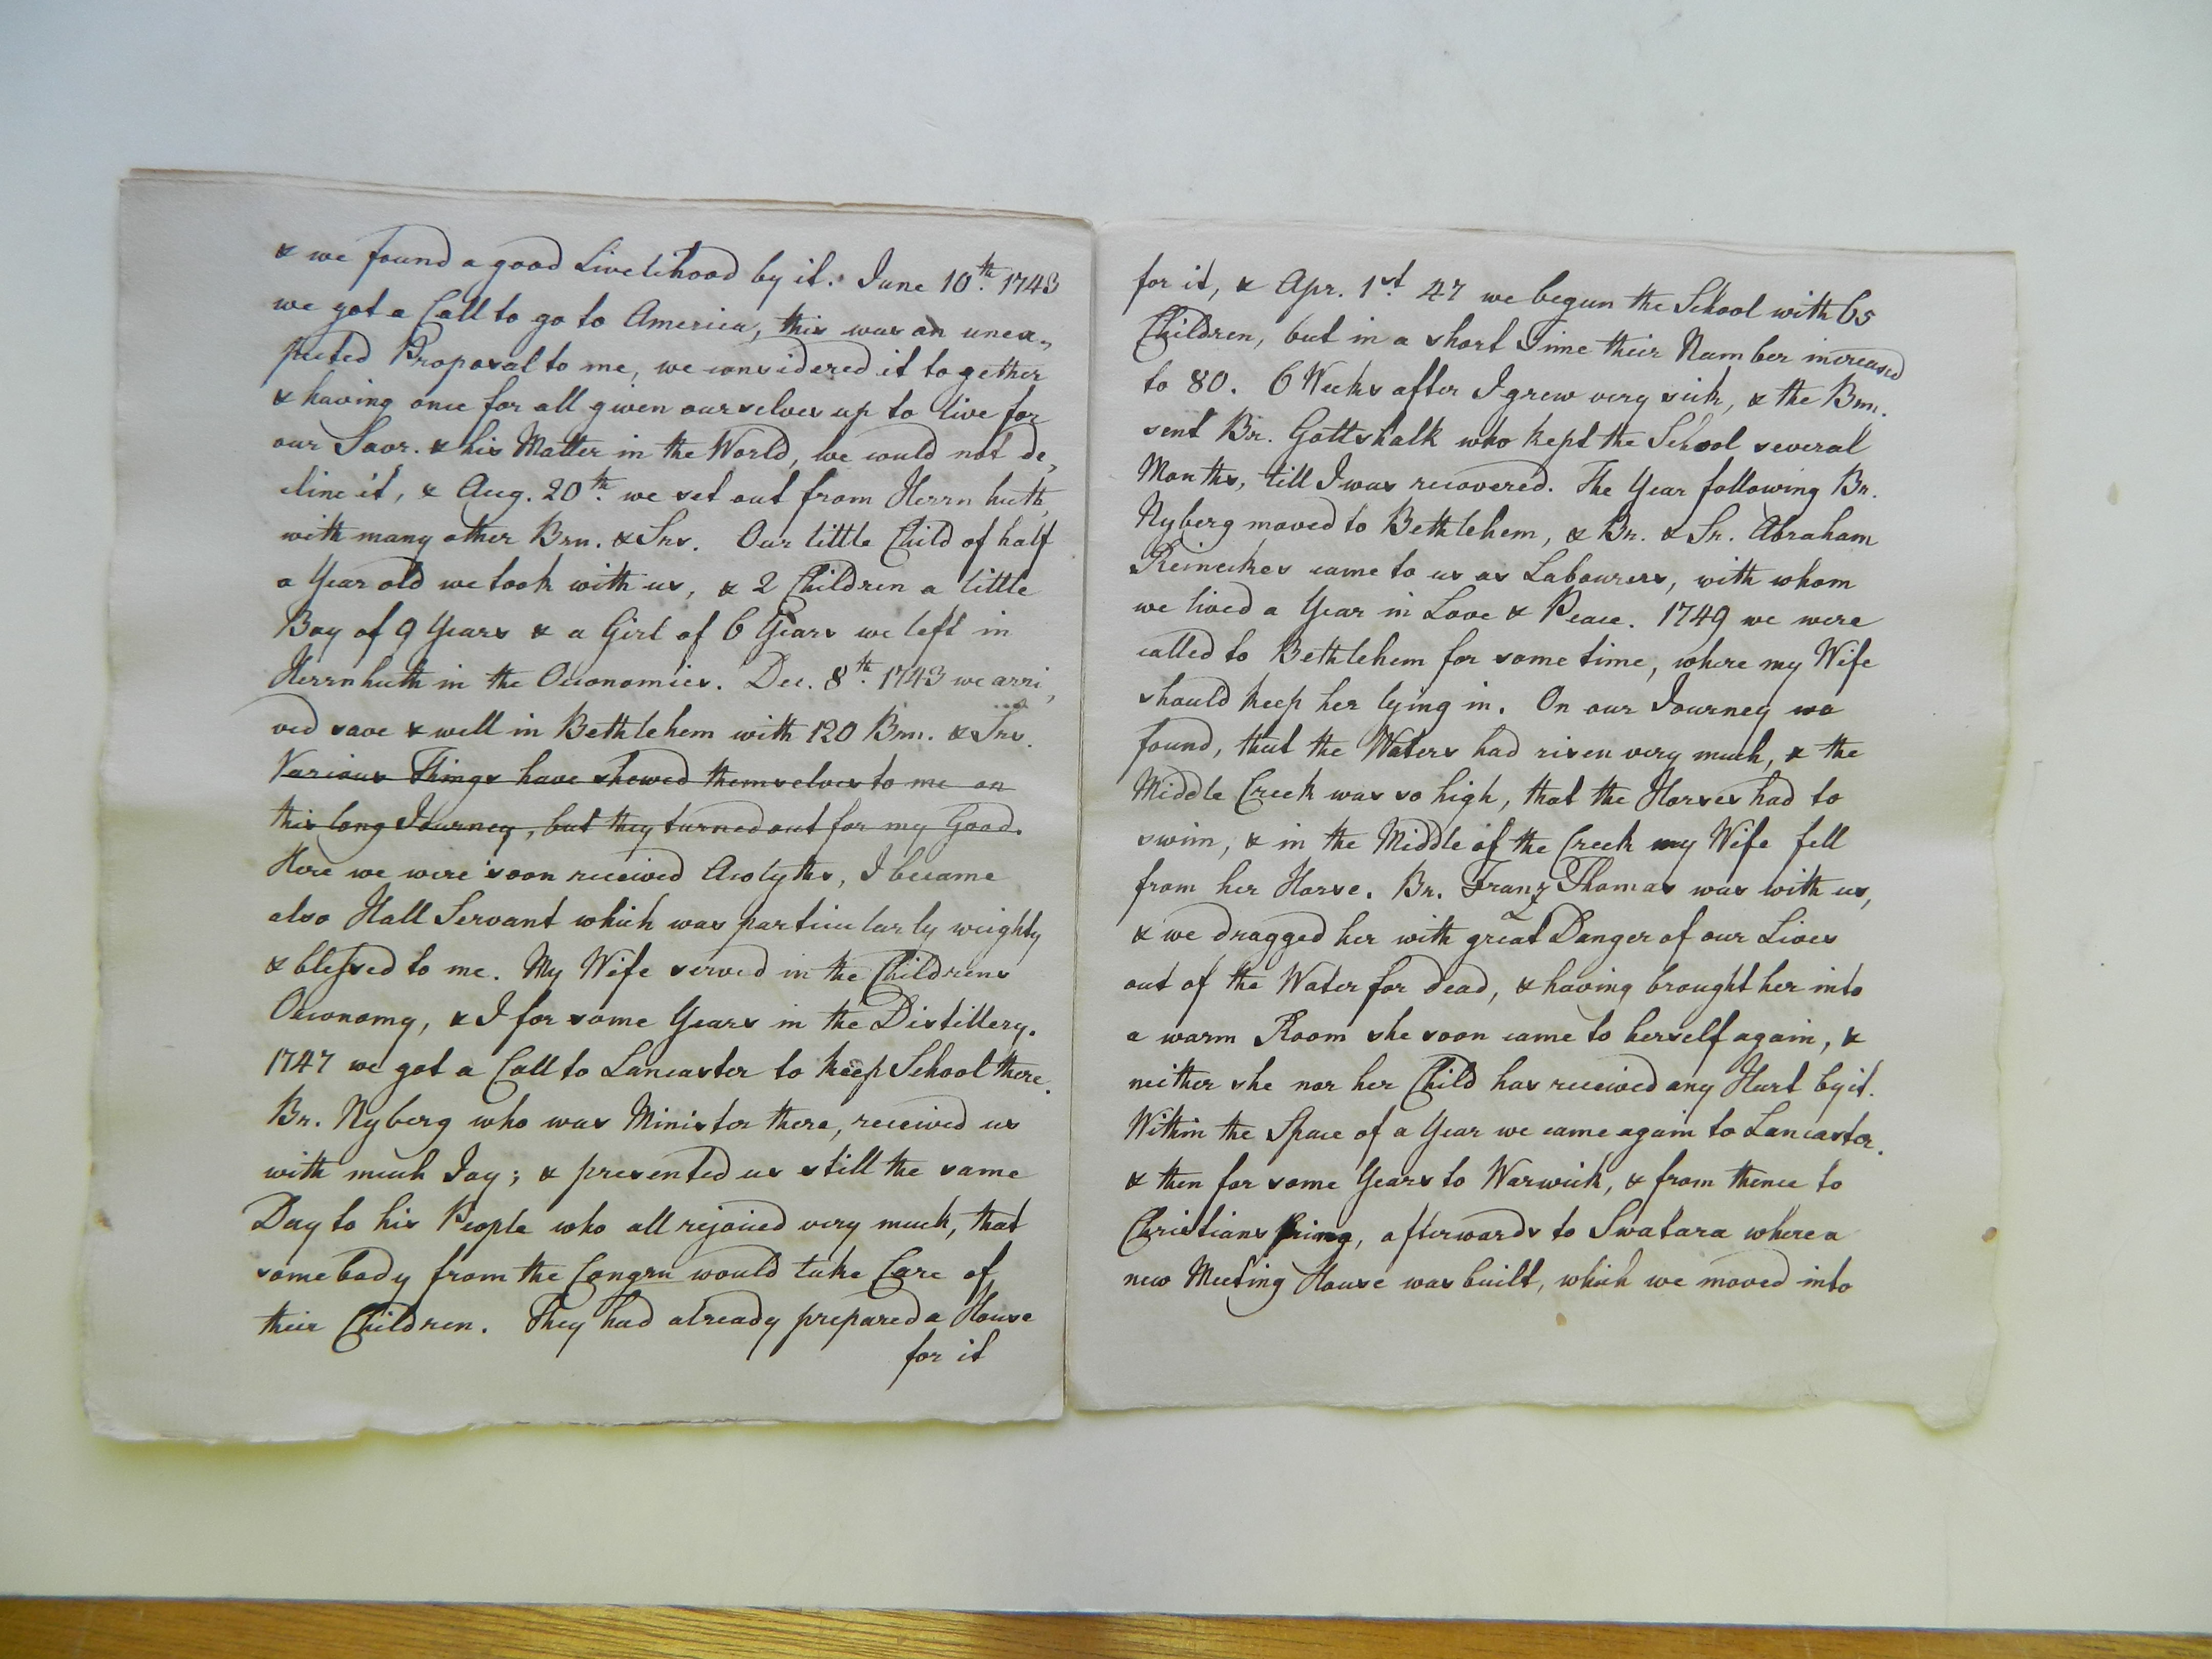 & we found a good Livelihood by it. June 10th. 1743
we got a Call to go to America, this was an unex„
pected Proposal to me, we considered it together
& having once for all given ourselves up to live for
our Savr. & his Matter in the World, we would not de„
cline it, & Aug. 20th. we set out from Herrnhuth,
with many other Brn. & Srs. Our little Child of half
a Year old we took with us, & 2 Children a little
Boy of 9 Years & a Girl of 6 Years we left in
Herrnhuth in the Oeconomies. Dec. 8th. 1743 we arri„
ved save & well in Bethlehem with 120 Brn. & Srs.
Various Things have shewed themselves to me on
this long Journey, but they turned out for my Good.
Here we were soon received Acolyths, I became
also Hall Servant which was particularly weighty
& blessed to me. My Wife served in the Childrens
Oeconomy, & I for some Years in the Distillery.
1747 we got a Call to Lancaster to keep School there.
Br. Nyberg who was Minister there, received us
with much Joy; & presented us still the same
Day to his People who all rejoiced very much, that
somebody from the Congrn would take Care of
their Children. They had already prepared a House
for it
for it, & Apr. 1st. 47 we begun the School with 65
Children, but in a short Time their Number increased
to 80. 6 Weeks after I grew very sick, & the Brn.
sent Br. Gottshalk who kept the School several
Months, till I was recovered. The Year following Br.
Nyberg moved to Bethlehem, & Br. & Sr. Abraham
Reinckes came to us as Labourers, with whom
we lived a Year in Love & Peace. 1749 we were
called to Bethlehem for some time, where my Wife
should keep her lying in. On our Journey we
found, that the Waters had risen very much, & the
Middle Creek was so high, that the Horses had to
swim, & in the Middle of the Creek my Wife fell
from her Horse. Br. Franz Thomas was with us,
& we dragged her with great Danger of our Lives
out of the Water for dead, & having brought her into
a warm Room she soon came to herself again, &
neither she nor her Child has received any Hurt by it.
Within the Space of a Year we came again to Lancaster.
& then for some Years to Warwick, & from thence to
Christiansspring, afterwards to Swatara where a
new Meeting House was built, which we moved into